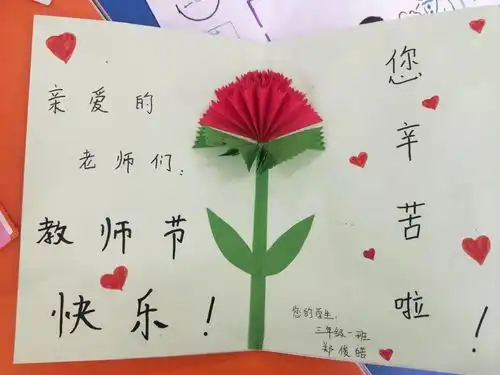 亲爱的
老师们：
教师节
快乐！
您辛苦啦！
您的学生：
三年级一班
郑俊皓